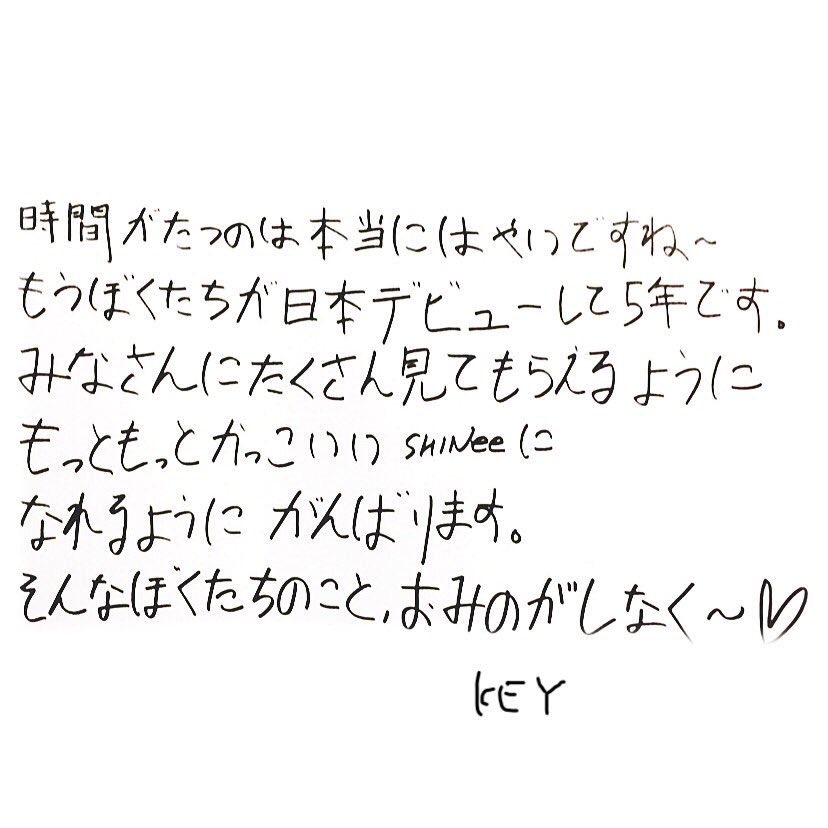 時間がたつのは本当にはやいですね~
もうぼくたちが日本デビューして5年です。
みなさんにたくさん見てもらえるように
もっともっとかっこいい SHINee に
なれるように がんばります。
そんなぼくたちのこと、おみのがしなく~♡
KEY